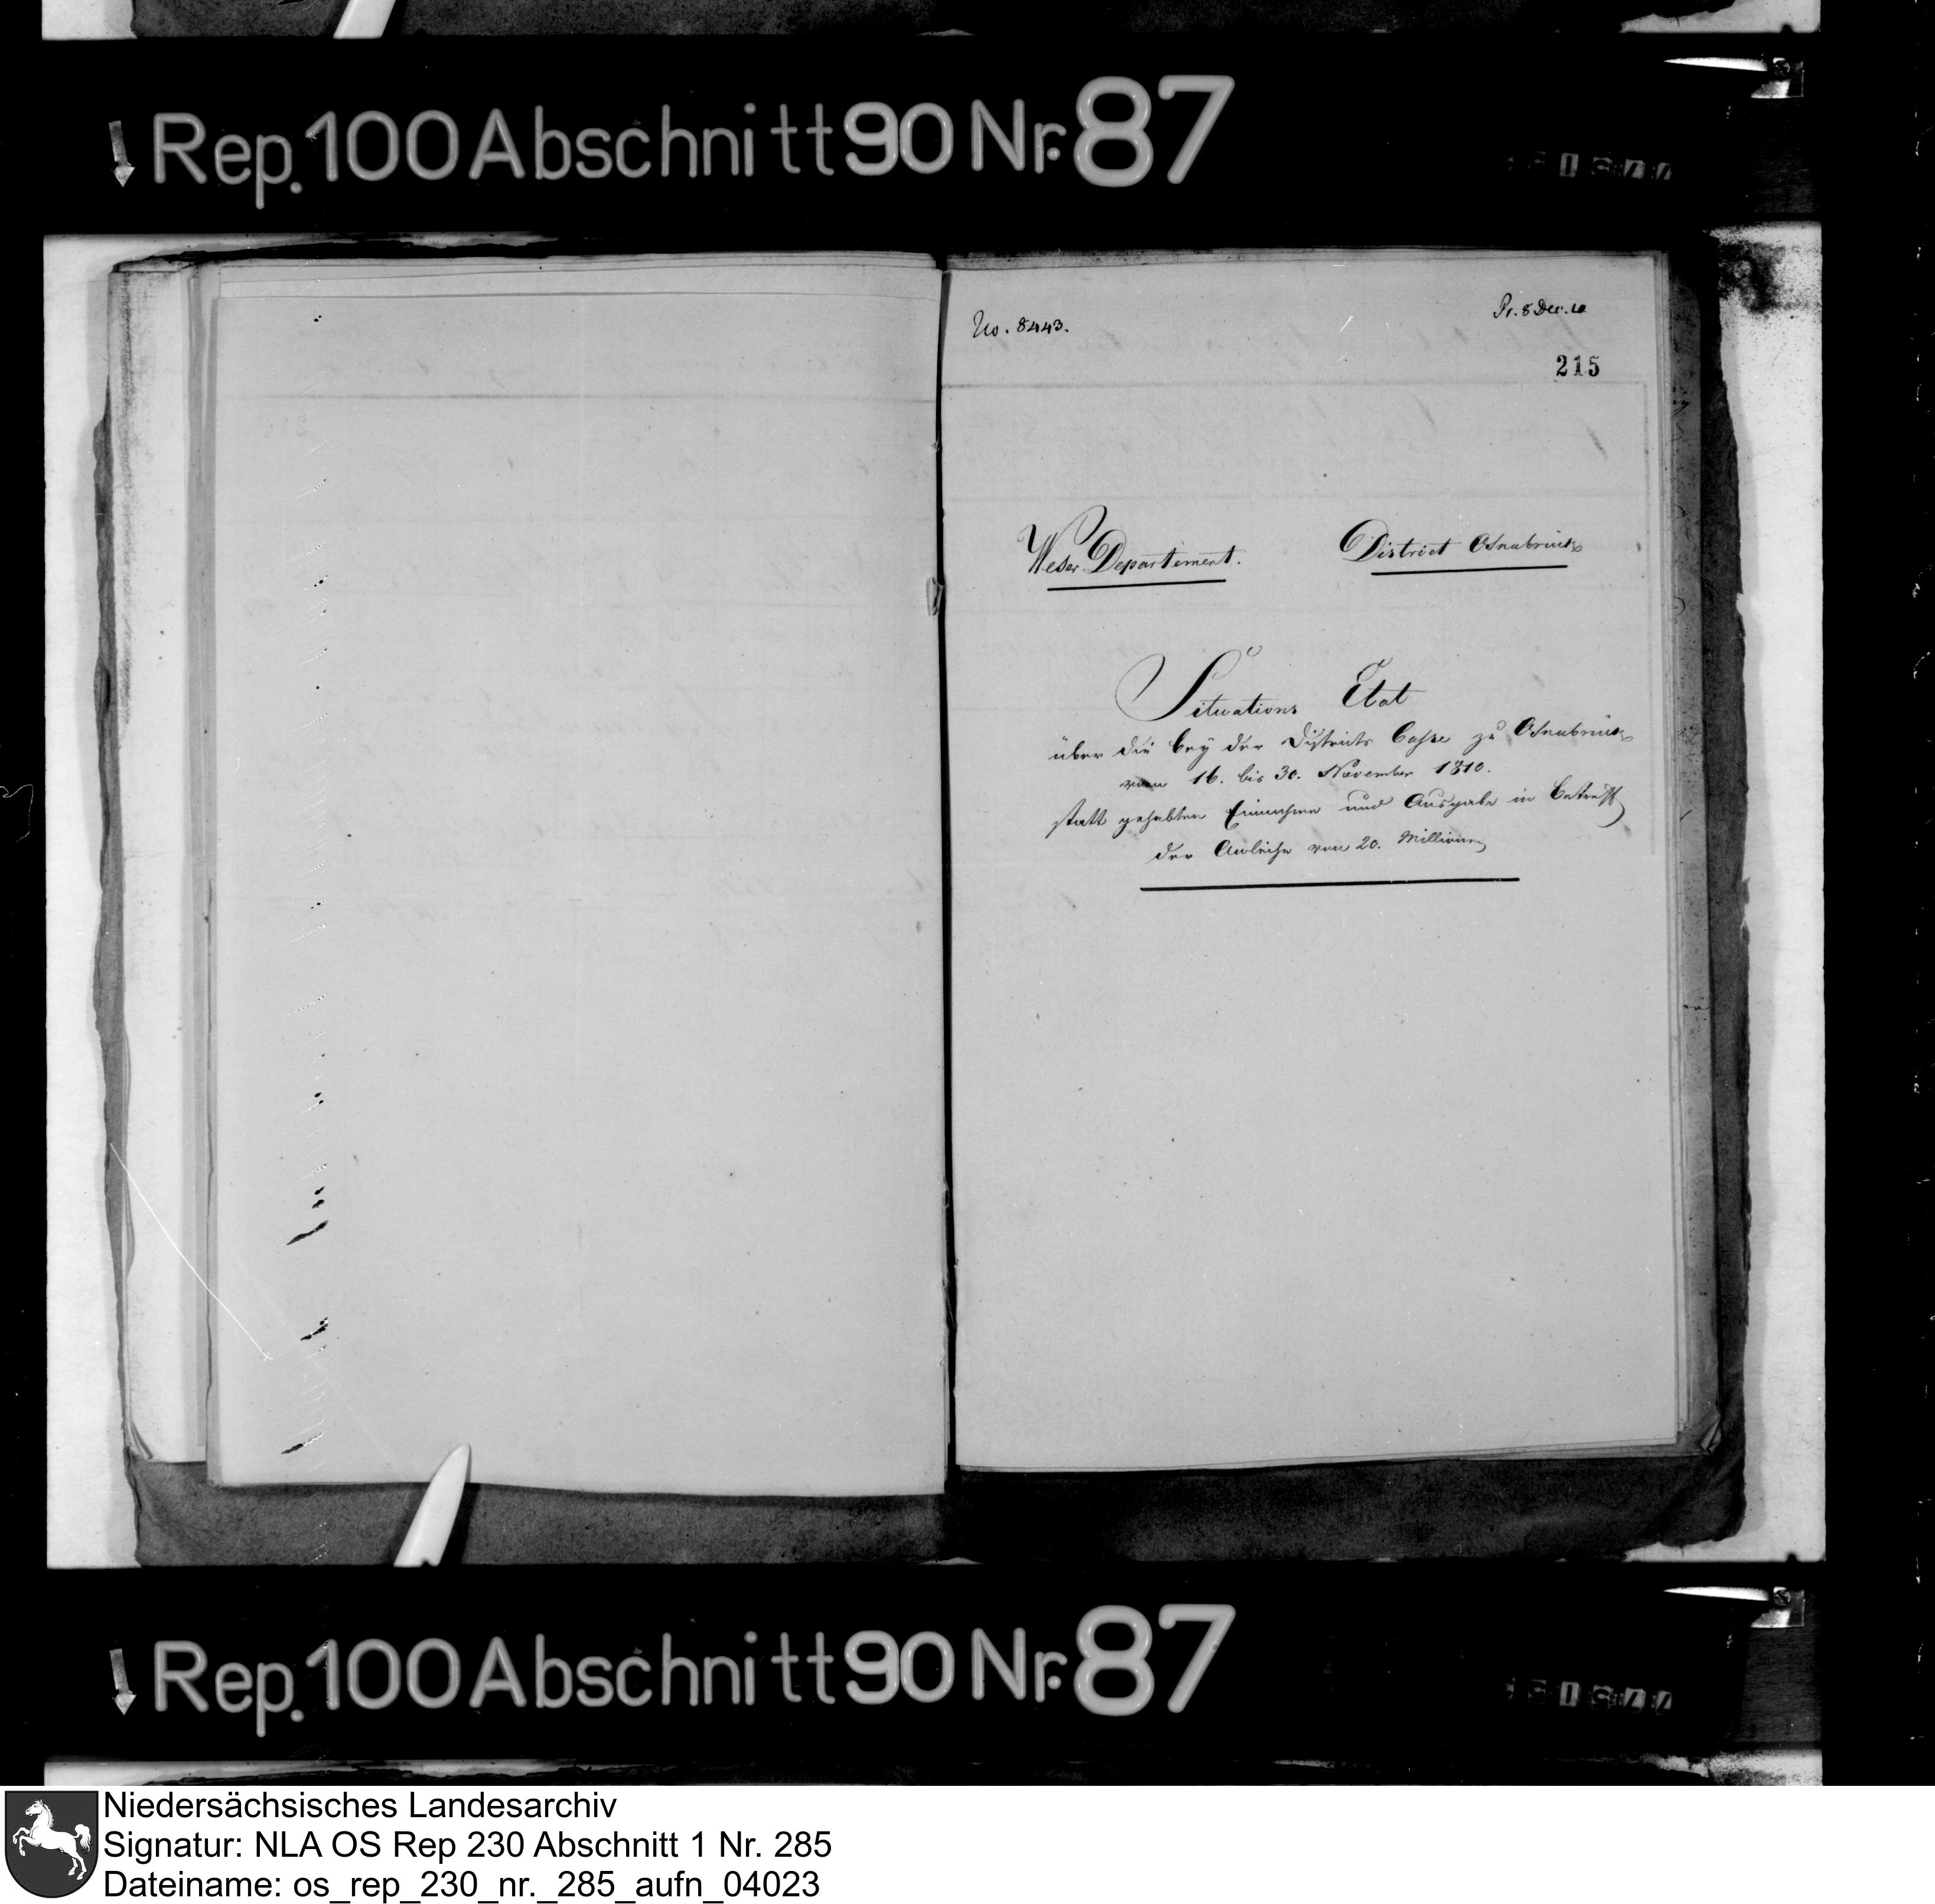 Rep. 100 Abschnitt 90 Nr. 87
No. 8443.
Pr. 8 Dec. 10
215
Weser Departement.
District Osnabrück
Situations Etat
über die bey der Districts Casse zu Osnabrück
vom 16. bis 30. November 1810.
statt gehabten Einnahme und Ausgabe in betreff
der Anleihe von 20. Millionen
Rep. 100 Abschnitt 90 Nr. 87
Niedersächsisches Landesarchiv
Signatur: NLA OS Rep 230 Abschnitt 1 Nr. 285
Dateiname: os_rep_230_nr._285_aufn_04023